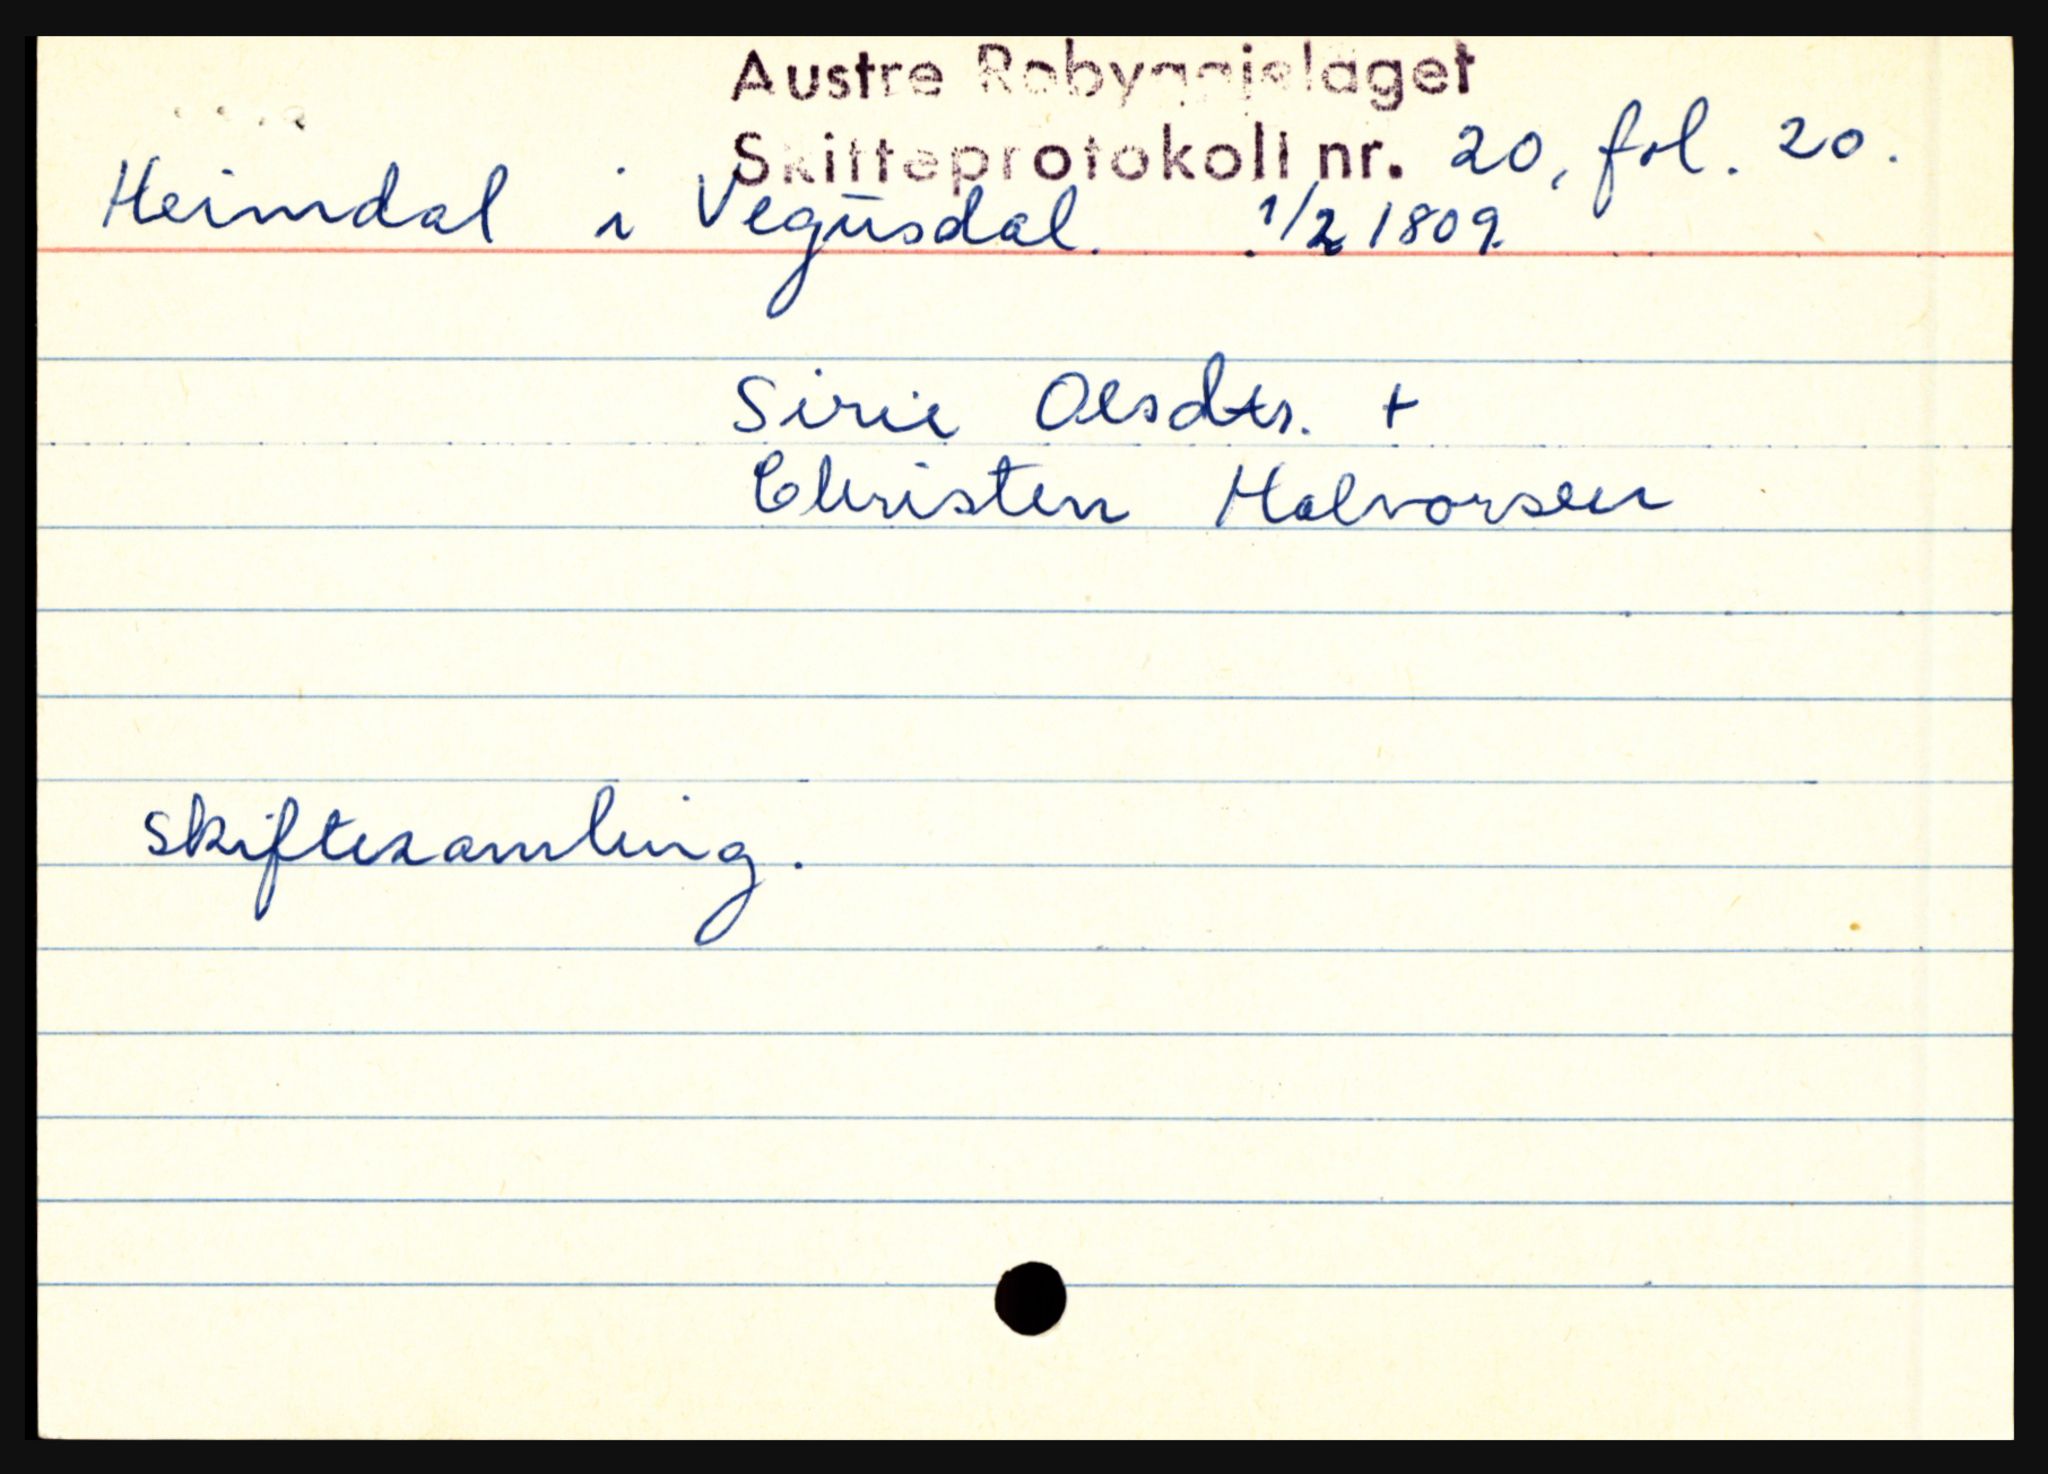 Austre Robyggjelaget
Skifteprotokoll nr. 20, fol. 20.
Heimdal i Vegusdal. 1/2 1809.
Sirie Olsdtr. +
Christen Halvorsen
Skiftesamling.